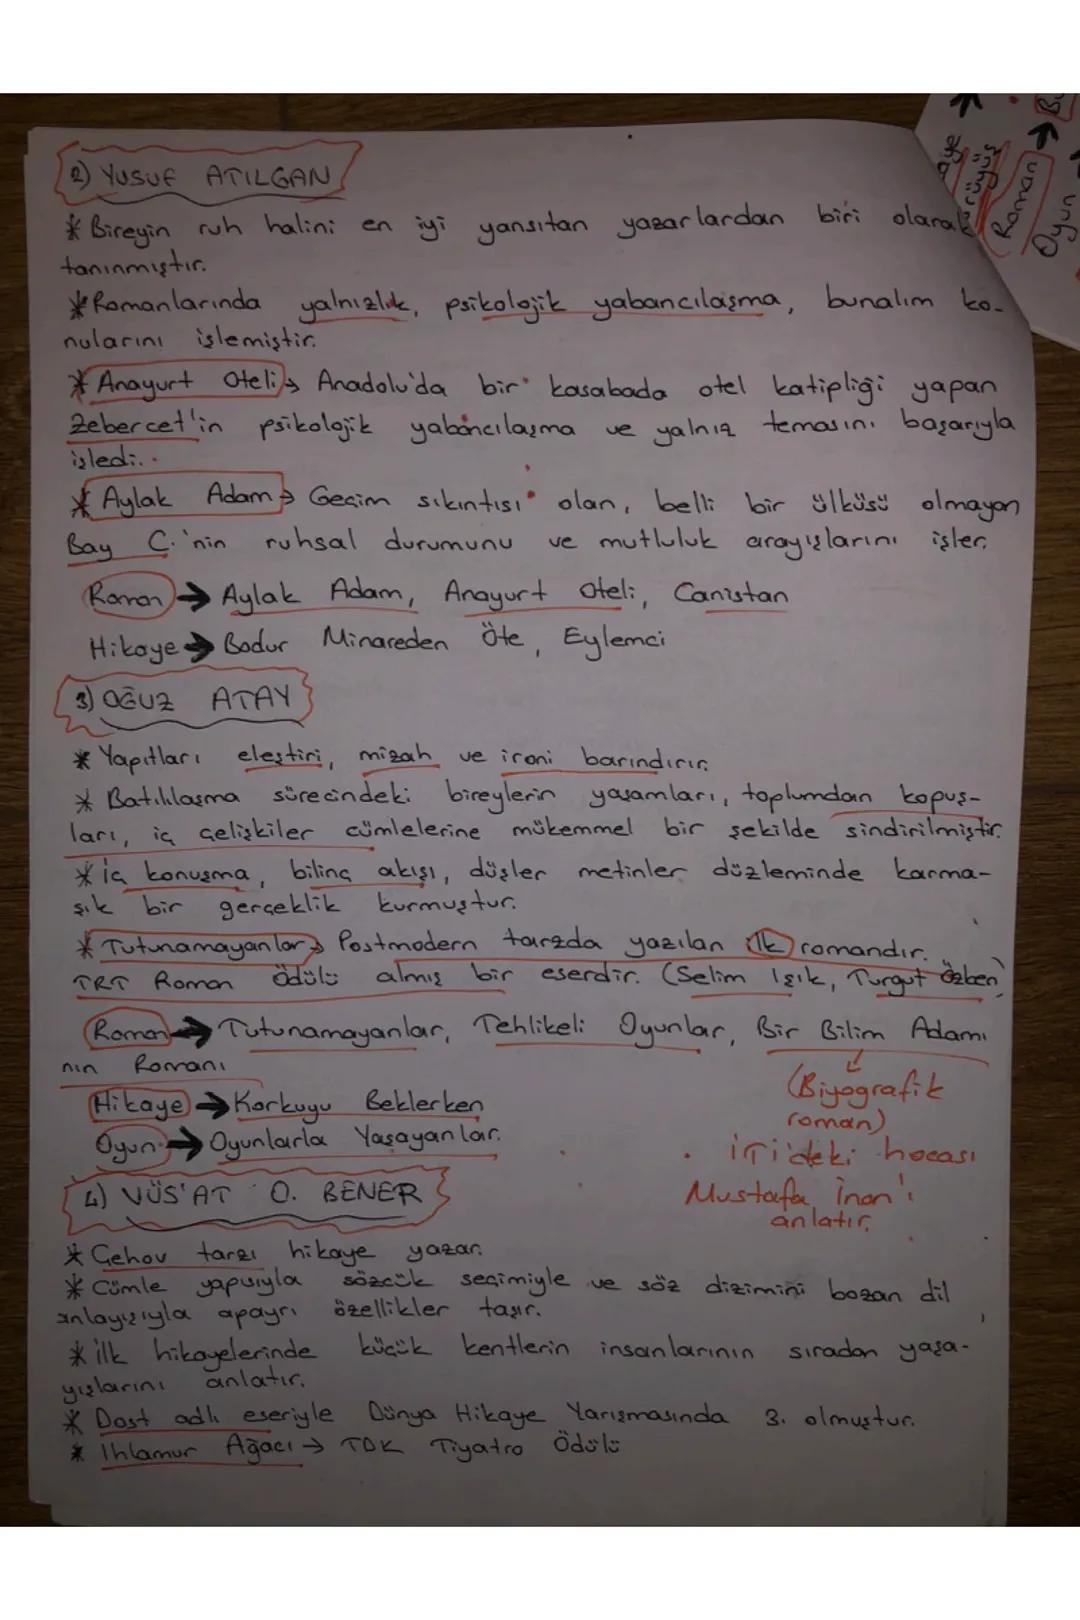 2) YUSUF ATILGAN
* Bireyin ruh halini en iyi yansıtan yazarlardan biri olarak
tanınmıştır.
* Romanlarında yalnızlık, psikolojik yabancılaşma, bunalım ko-
nularını işlemiştir.
* Anayurt Oteli → Anadolu'da bir kasabada otel katipliği yapan
Zebercet'in psikolojik yabancılaşma ve yalnız temasını başarıyla
işledi.
* Aylak Adam → Geçim sıkıntısı olan, belli bir ülküsü olmayan
Bay C.'nin ruhsal durumunu ve mutluluk arayışlarını işler.
Roman → Aylak Adam, Anayurt Oteli, Canistan
Hikaye → Bodur Minareden Öte, Eylemci
3) OĞUZ ATAY
* Yapıtları eleştiri, mizah ve ironi barındırır.
* Batılılaşma sürecindeki bireylerin yaşamları, toplumdan kopuş-
ları, iç çelişkiler cümlelerine mükemmel bir şekilde sindirilmiştir.
* İç konuşma, bilinç akışı, düşler metinler düzleminde karma-
şık bir gerçeklik kurmuştur.
* Tutunamayanlar → Postmodern tarzda yazılan ilk romandır.
TRT Roman Ödülü almış bir eserdir. (Selim Işık, Turgut Özben)
Roman → Tutunamayanlar, Tehlikeli Oyunlar, Bir Bilim Adamı
nın Romanı
(Biyografik
roman)
Hikaye → Korkuyu Beklerken
Oyun → Oyunlarla Yaşayanlar.
• İTİ'deki hocası
Mustafa İnan'ı
anlatır.
4) VÜS'AT O. BENER
* Çehov tarzı hikaye yazar.
* Cümle yapısıyla sözcük seçimiyle ve söz dizimini bozan dil
anlayışıyla apayrı özellikler taşır.
* İlk hikayelerinde küçük kentlerin insanlarının sıradan yaşa-
yışlarını anlatır.
* Dost adlı eseriyle Dünya Hikaye Yarışmasında 3. olmuştur.
* Ihlamur Ağacı → TDK Tiyatro Ödülü
Roman →
Oyun